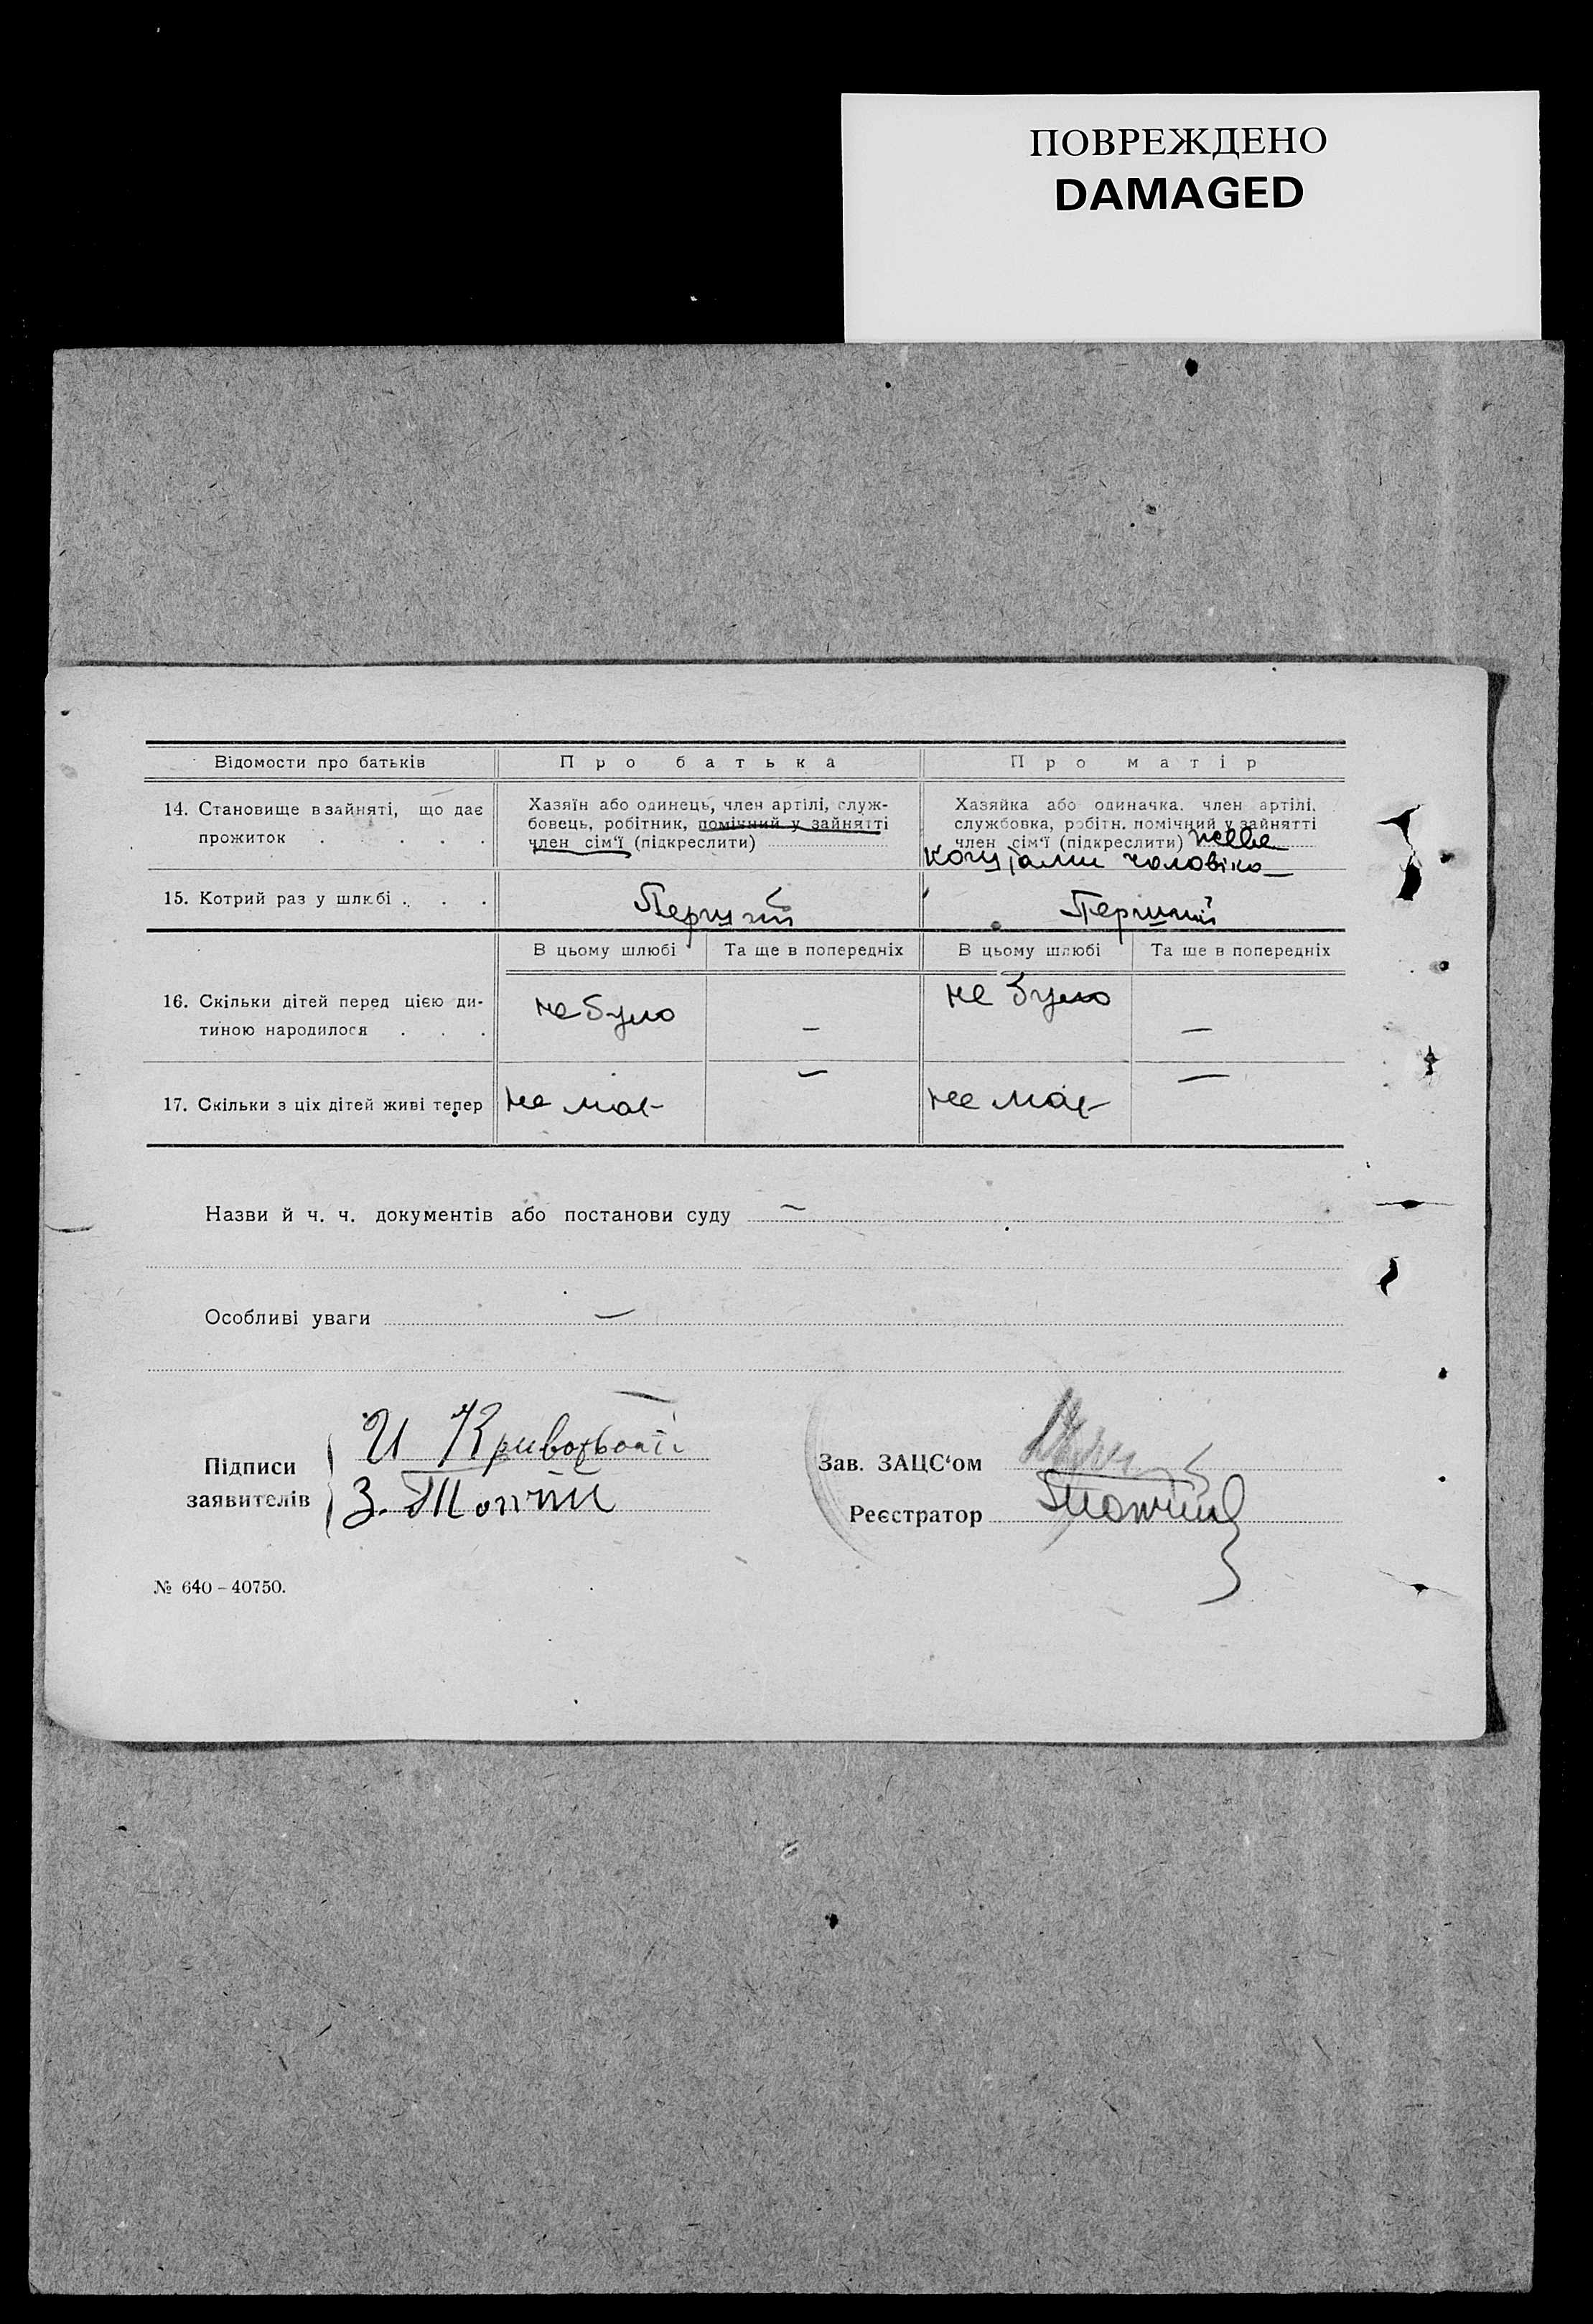 ПОВРЕЖДЕНО
DAMAGED
Відомости про батьків
Про батька
Про матір
14. Становище в зайняті, що дає
прожиток . . . .
Хазяїн або одинець, член артілі, служ-
бовець, робітник, помічний у зайнятті
член сім'ї (підкреслити)
Хазяйка або одиначка, член артілі,
службовка, робітн. помічний у зайнятті
член сім'ї (підкреслити) живе
коштами чоловіка
15. Котрий раз у шлюбі . . .
Перший
Перший
В цьому шлюбі
Та ще в попередніх
В цьому шлюбі
Та ще в попередніх
16. Скільки дітей перед цією ди-
тиною народилося . . .
не було
—
не було
—
17. Скільки з ціх дітей живі тепер
не має
—
не має
—
Назви й ч. ч. документів або постанови суду —
Особливі уваги —
Підписи
заявителів
И
З.
Зав. ЗАЦС‘ом
Реєстратор
№ 640 – 40750.